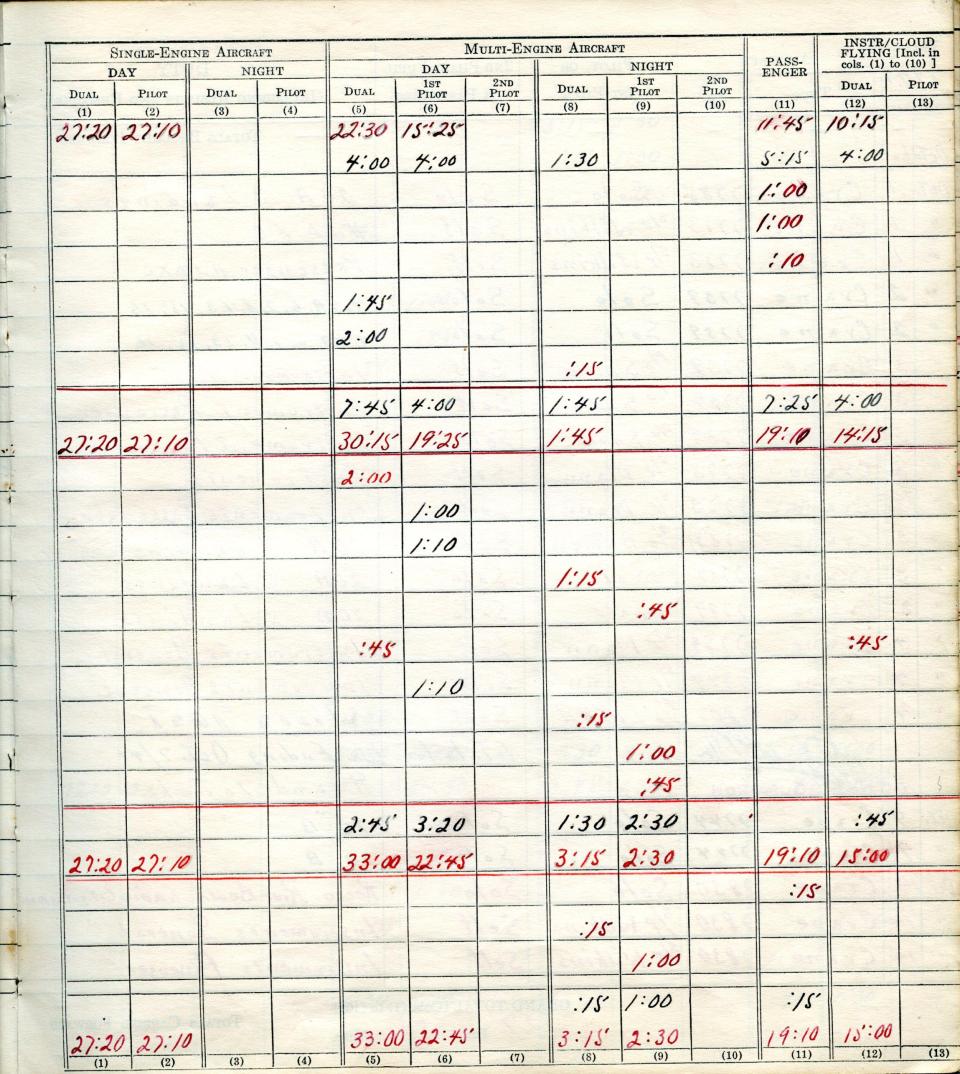 SINGLE-ENGINE AIRCRAFT MULTI-ENGINE AIRCRAFT PASS-ENGER INSTR/CLOUD FLYING [Incl. in cols. (1) to (10) ]
DAY NIGHT DAY NIGHT
DUAL PILOT DUAL PILOT DUAL 1ST PILOT 2ND PILOT DUAL 1ST PILOT 2ND PILOT DUAL PILOT
(1) (2) (3) (4) (5) (6) (7) (8) (9) (10) (11) (12) (13)
27:20 27:10 22:30 15:25 11:45 10:15
4:00 4:00 1:30 5:15 4:00
1:00
1:00
:10
1:45
2:00
:15
7:45 4:00 1:45 7:25 4:00
27:20 27:10 30:15 19:25 1:45 19:10 14:15
2:00
1:00
1:10
1:15
:45
:45 :45
1:10
:15
1:00
:45
2:45 3:20 1:30 2:30 :45
27:20 27:10 33:00 22:45 3:15 2:30 19:10 15:00
:15
:15
1:00
:15 1:00 :15
27:20 27:10 33:00 22:45 3:15 2:30 19:10 15:00
(1) (2) (3) (4) (5) (6) (7) (8) (9) (10) (11) (12) (13)